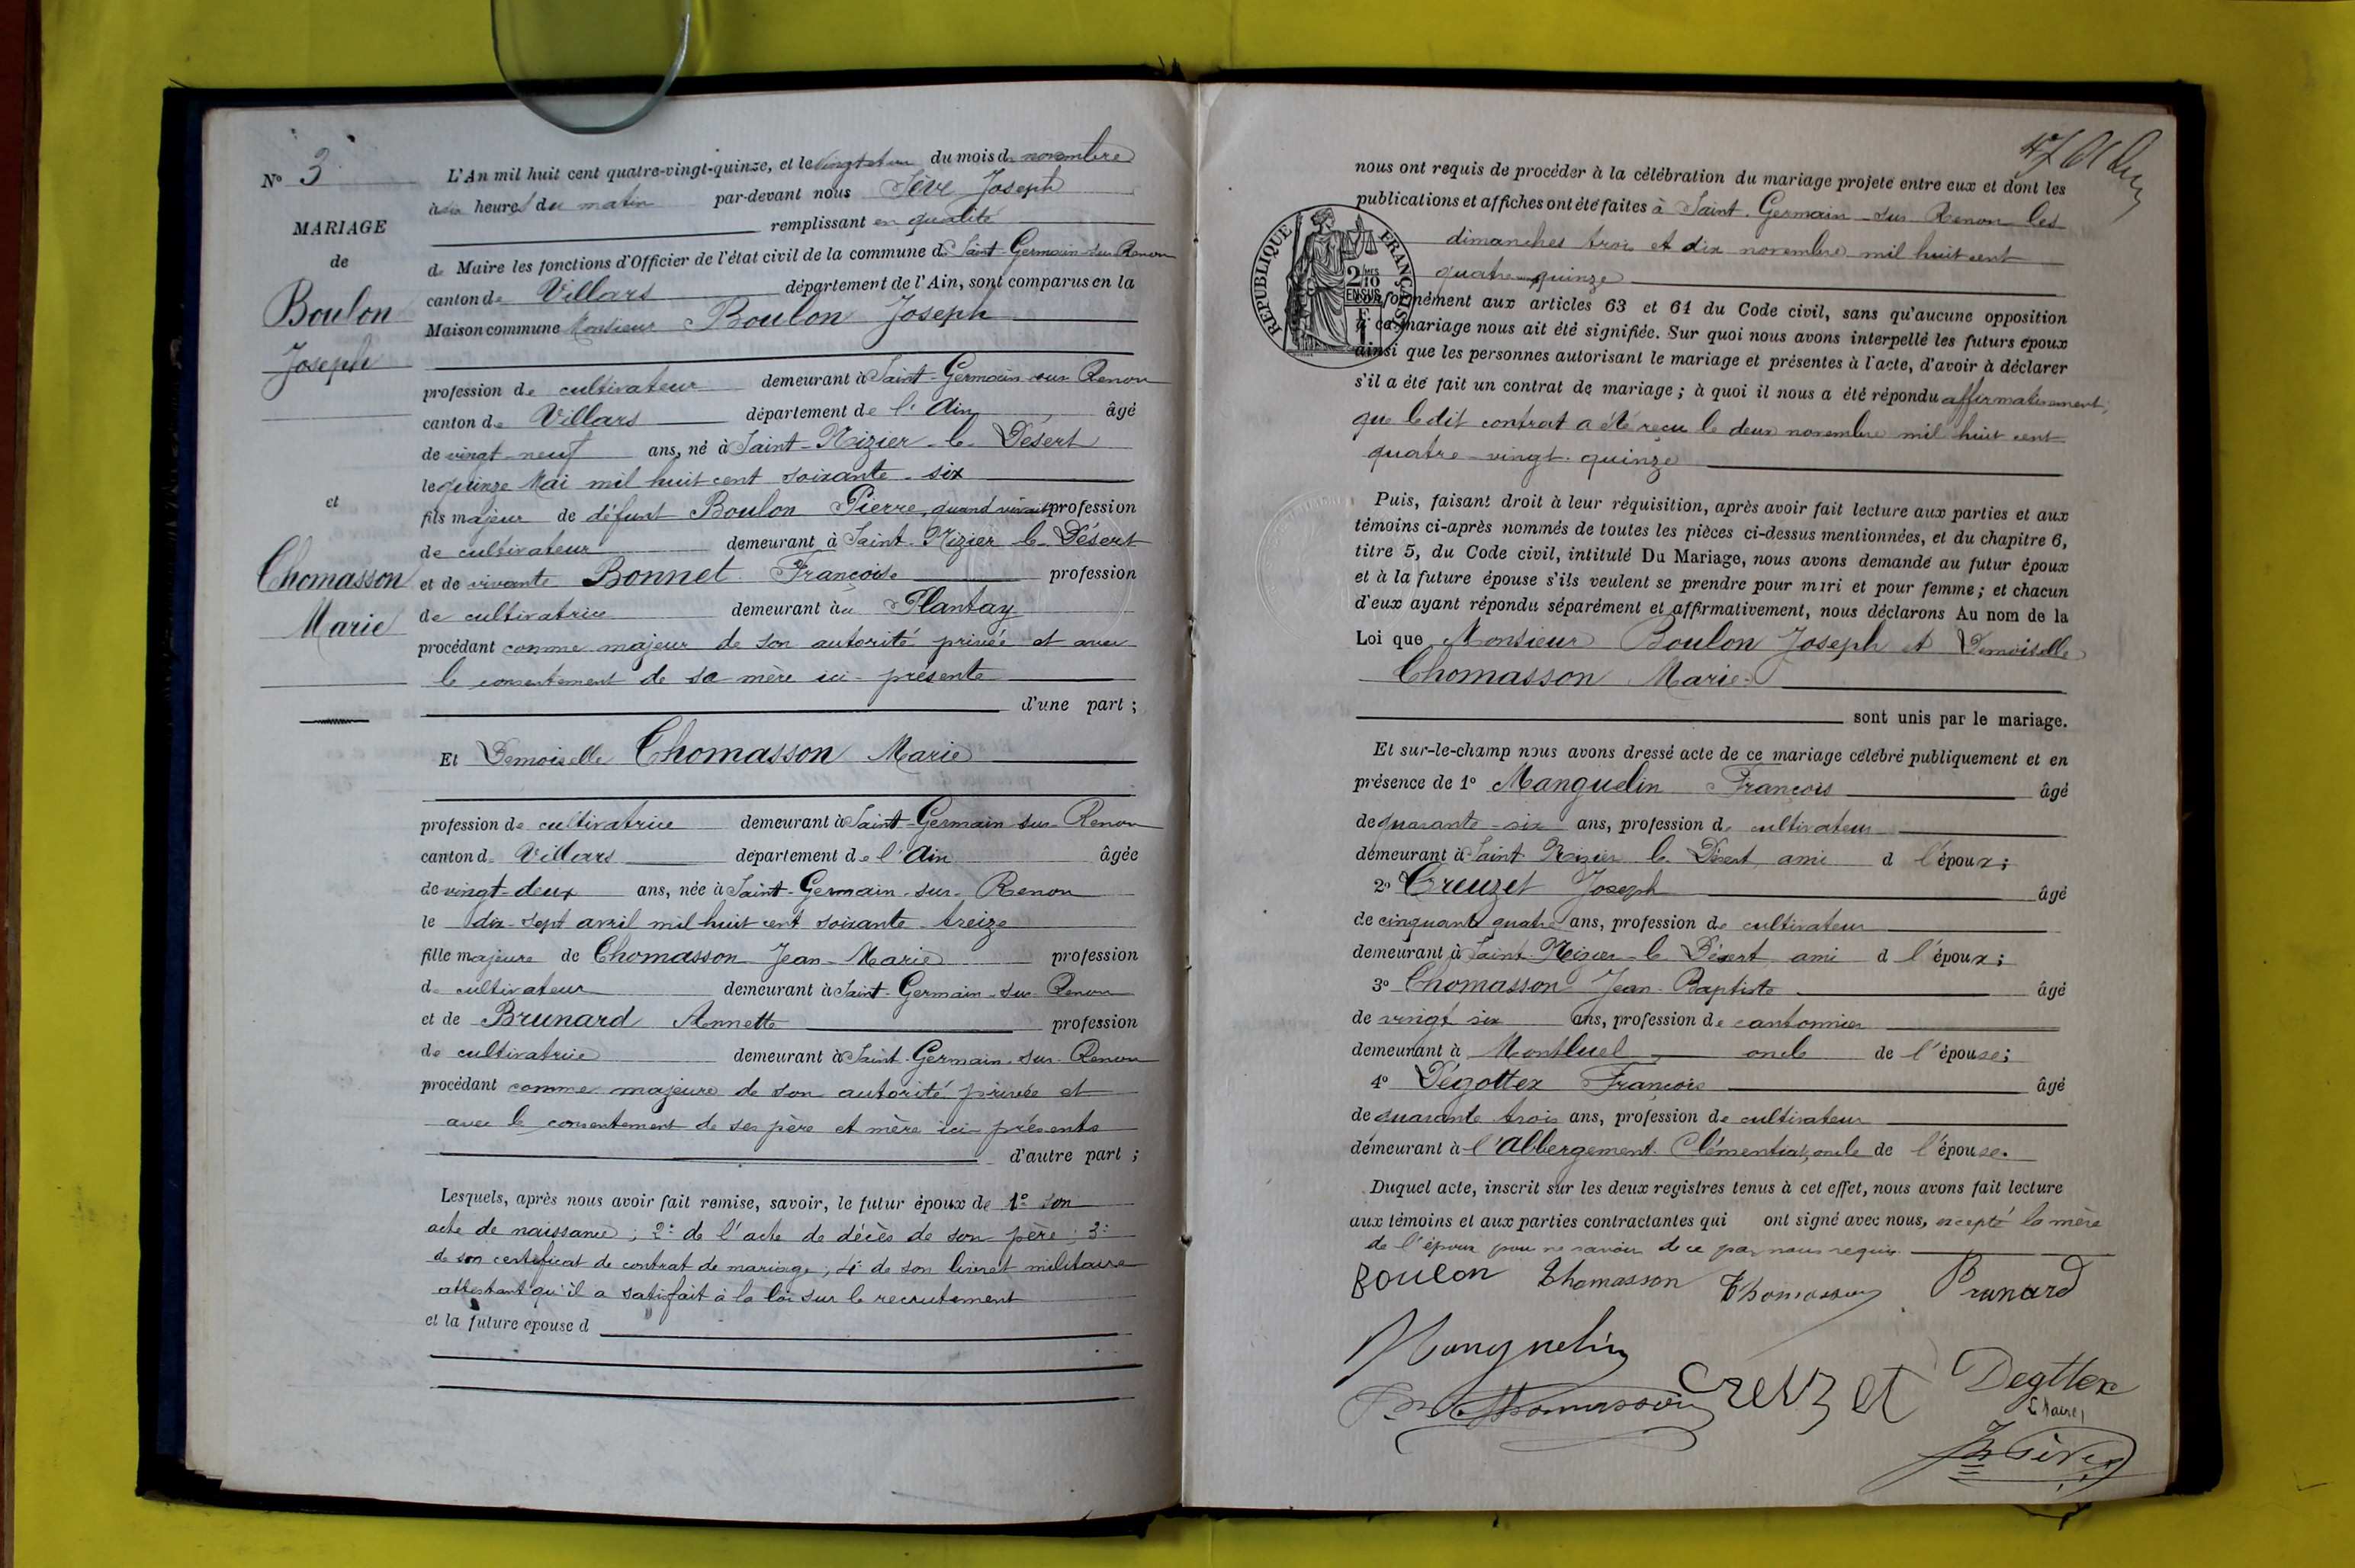 N° 3
MARIAGE
de
Boulon
Joseph
et
Thomasson
Marie
L'An mil huit cent quatre-vingt-quinze, et le vingt et un du mois de novembre
à dix heures du matin par-devant nous Sève Joseph
remplissant en qualité
de Maire les fonctions d'Officier de l'état civil de la commune de Saint-Germain-sur-Renon
canton de Villars département de l'Ain, sont comparus en la
Maison commune Monsieur Boulon Joseph
profession de cultivateur demeurant à Saint-Germain-sur-Renon
canton de Villars département de l'Ain, âgé
de vingt-neuf ans, né à Saint-Nizier-le-Désert
le quinze Mai mil huit cent soixante-six
fils majeur de défunt Boulon Pierre, quand vivait profession
de cultivateur demeurant à Saint-Nizier-le-Désert
et de vivante Bonnet Françoise profession
de cultivatrice demeurant au Plantay
procédant comme majeur de son autorité privée et avec
le consentement de sa mère ici-présente
d'une part ;
Et Demoiselle Thomasson Marie
profession de cultivatrice demeurant à Saint-Germain-sur-Renon
canton de Villars département de l'Ain âgée
de vingt-deux ans, née à Saint-Germain-sur-Renon
le dix-sept avril mil huit cent soixante-treize
fille majeure de Thomasson Jean-Marie profession
de cultivateur demeurant à Saint-Germain-sur-Renon
et de Brunard Annette profession
de cultivatrice demeurant à Saint-Germain-sur-Renon
procédant comme majeure de son autorité privée et
avec le consentement de ses père et mère ici-présents
d'autre part ;
Lesquels, après nous avoir fait remise, savoir, le futur époux de 1° son
acte de naissance ; 2° de l'acte de décès de son père ; 3°
de son certificat de contrat de mariage ; 4° de son livret militaire
attestant qu'il a satisfait à la loi sur le recrutement
et la future épouse d
nous ont requis de procéder à la célébration du mariage projeté entre eux et dont les
publications et affiches ont été faites à Saint-Germain-sur-Renon les
dimanches trois et dix novembre mil huit cent
quatre quinze
RÉPUBLIQUE FRANÇAISE
2/10 EN SUS
conformément aux articles 63 et 64 du Code civil, sans qu'aucune opposition
à ce mariage nous ait été signifiée. Sur quoi nous avons interpellé les futurs époux
ainsi que les personnes autorisant le mariage et présentes à l'acte, d'avoir à déclarer
s'il a été fait un contrat de mariage ; à quoi il nous a été répondu affirmativement,
que ledit contrat a été reçu le deux novembre mil huit cent
quatre-vingt-quinze
Puis, faisant droit à leur réquisition, après avoir fait lecture aux parties et aux
témoins ci-après nommés de toutes les pièces ci-dessus mentionnées, et du chapitre 6,
titre 5, du Code civil, intitulé Du Mariage, nous avons demandé au futur époux
et à la future épouse s'ils veulent se prendre pour mari et pour femme ; et chacun
d'eux ayant répondu séparément et affirmativement, nous déclarons Au nom de la
Loi que Monsieur Boulon Joseph et Demoiselle
Thomasson Marie
sont unis par le mariage.
Et sur-le-champ nous avons dressé acte de ce mariage célébré publiquement et en
présence de 1° Manguelin François âgé
de quarante-six ans, profession de cultivateur
demeurant à Saint-Nizier-le-Désert ami d l'époux ;
2° Creuzet Joseph âgé
de cinquante quatre ans, profession de cultivateur
demeurant à Saint-Nizier-le-Désert ami d l'époux ;
3° Thomasson Jean-Baptiste âgé
de vingt six ans, profession de cantonnier
demeurant à Montluel, oncle de l'épouse ;
4° Dégottex François âgé
de quarante trois ans, profession de cultivateur
demeurant à l'Abbergement-Clémentiat, oncle de l'épouse.
Duquel acte, inscrit sur les deux registres tenus à cet effet, nous avons fait lecture
aux témoins et aux parties contractantes qui ont signé avec nous, excepté la mère
de l'époux pour ne savoir de ce par nous requis.
Boulon Thomasson Thomasson Brunard
Manguelin
Thomasson Creuzet Degttex
Le Maire
Sève